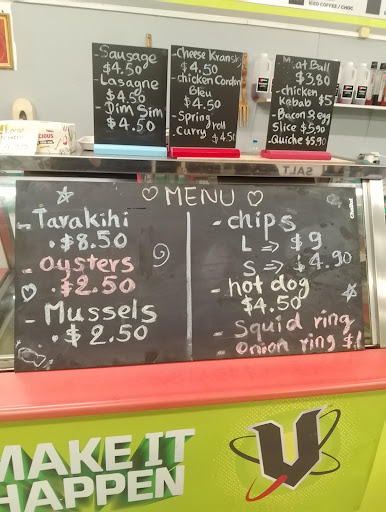 ICED COFFEE / CHOC
- Sausage
$4.50
- Lasagne
$4.50
- Dim Sim
$4.50
- Cheese Kransky
$4.50
- chicken Cordon
Bleu
$4.50
- Spring roll
Curry $4.50
at Ball
$3.80
- chicken
Kebab $5
- Bacon & egg
Slice $5.90
- Quiche $5.90
SALT
MENU
- Tarakihi
. $8.50
- oysters
. $2.50
- Mussels
. $2.50
- chips
L ⇒ $9
S ⇒ $4.90
- hot dog
$4.50
- Squid ring
- Onion ring $1
MAKE IT
HAPPEN
V